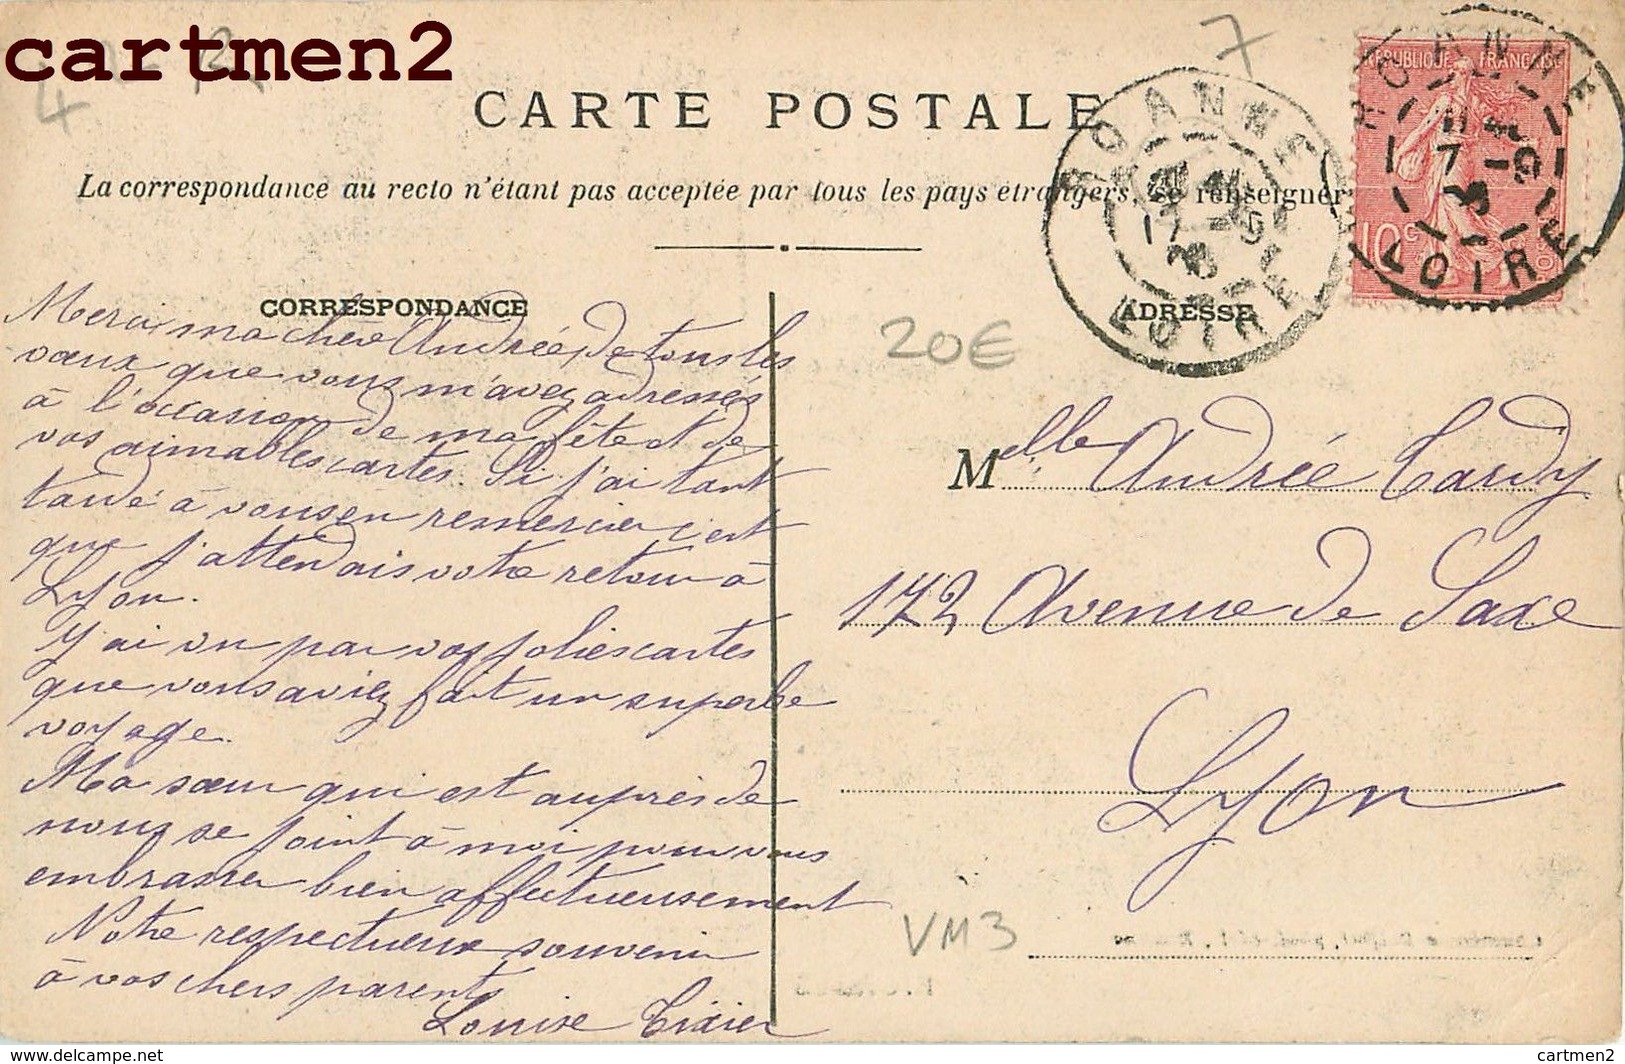 cartmen2
7
4
CARTE POSTALE
La correspondance au recto n'étant pas acceptée par tous les pays étrangers, se renseigner
RÉPUBLIQUE FRANÇAISE
10c
ROANNE
LOIRE
ROANNE
LOIRE
CORRESPONDANCE
ADRESSE
20€
Merci ma chère Andrée, de tous les
vœux que vous m'avez adressés
à l'occasion de ma fête et de
vos aimables cartes. Si j'ai tant
tardé à vous en remercier c'est
que j'attendais votre retour à
Lyon.
J'ai vu par vos jolies cartes
que vous aviez fait un superbe
voyage.
Ma sœur qui est auprès de
nous se joint à moi pour vous
embrasser bien affectueusement
Notre respectueux souvenir
à vos chers parents
Louise Tixier
Melle Andrée Tardy
172 Avenue de Saxe
Lyon
VM3
delcampe.net
cartmen2